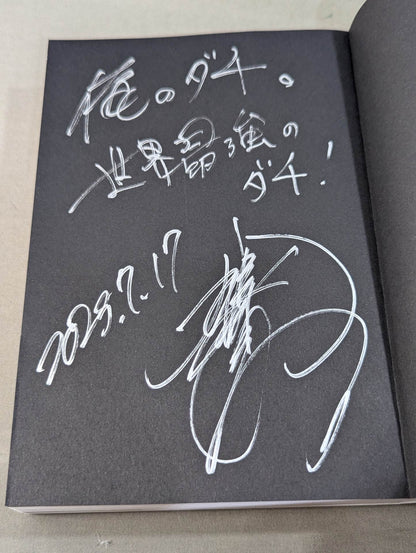 俺のダチ。
世界最強の
ダチ!
2023.7.17